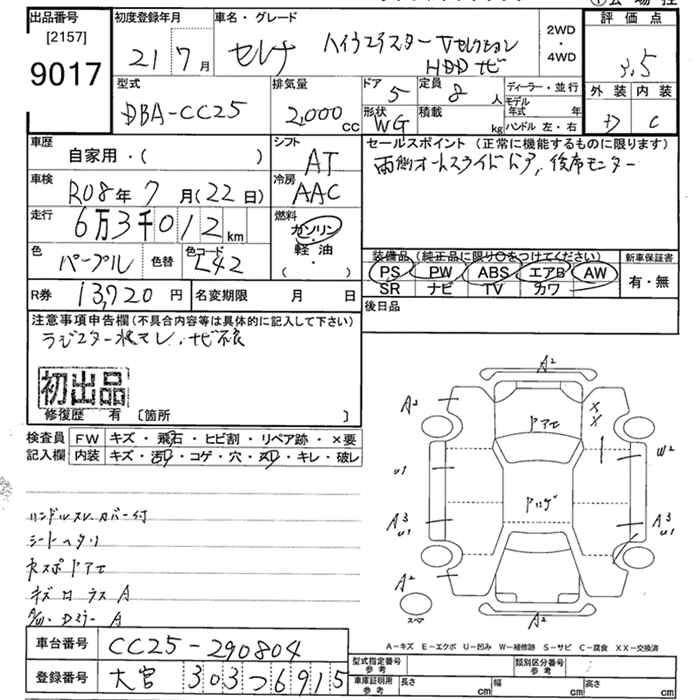 出品番号
[2157]
9017
初度登録年月
21 7月
車名・グレード
セレナ ハイウェイスター Vセレクション
HDDナビ
2WD
・
4WD
評価点
3.5
外装 内装
D C
型式
DBA-CC25
排気量
2,000 cc
ドア 5
定員 8人
形状 WG
積載 kg
ディーラー・並行
モデル年式 年
ハンドル 左・右
車歴
自家用・( )
シフト
AT
セールスポイント (正常に機能するものに限ります)
両側オートスライドドア, 後席モニター
車検
R08年7月(22日)
冷房
AAC
走行
6万3千012km
燃料
ガソリン
軽油
・
( )
色
パープル
色替
色コード
L42
装備品 (純正品に限り○をつけてください)
PS PW ABS エアB AW
SR ナビ TV カワ
新車保証書
有・無
R券 13,720円
名変期限 月 日
後日品
注意事項申告欄(不具合内容等は具体的に記入して下さい)
ラジエター水モレ, ナビ不良
初出品
修復歴 有 [箇所 ]
検査員
記入欄
FW キズ・飛石・ヒビ割・リペア跡・×要
内装 キズ・汚れ・コゲ・穴・スリ・キレ・破レ
ハンドルスレ, カバー付
シートヘタリ
A2
A2
ドアモ
×
×
U1
W2
A3
U1
A3
U1
A2
スペア
A2
A－キズ E－エクボ U－凹み W－補修跡 S－サビ C－腐食 XX－交換済
車台番号 CC25-290804
登録番号 大宮 303つ6915
型式指定番号
参考
類別区分番号
参考
車庫証明用
参考
長さ cm 幅 cm 高さ cm